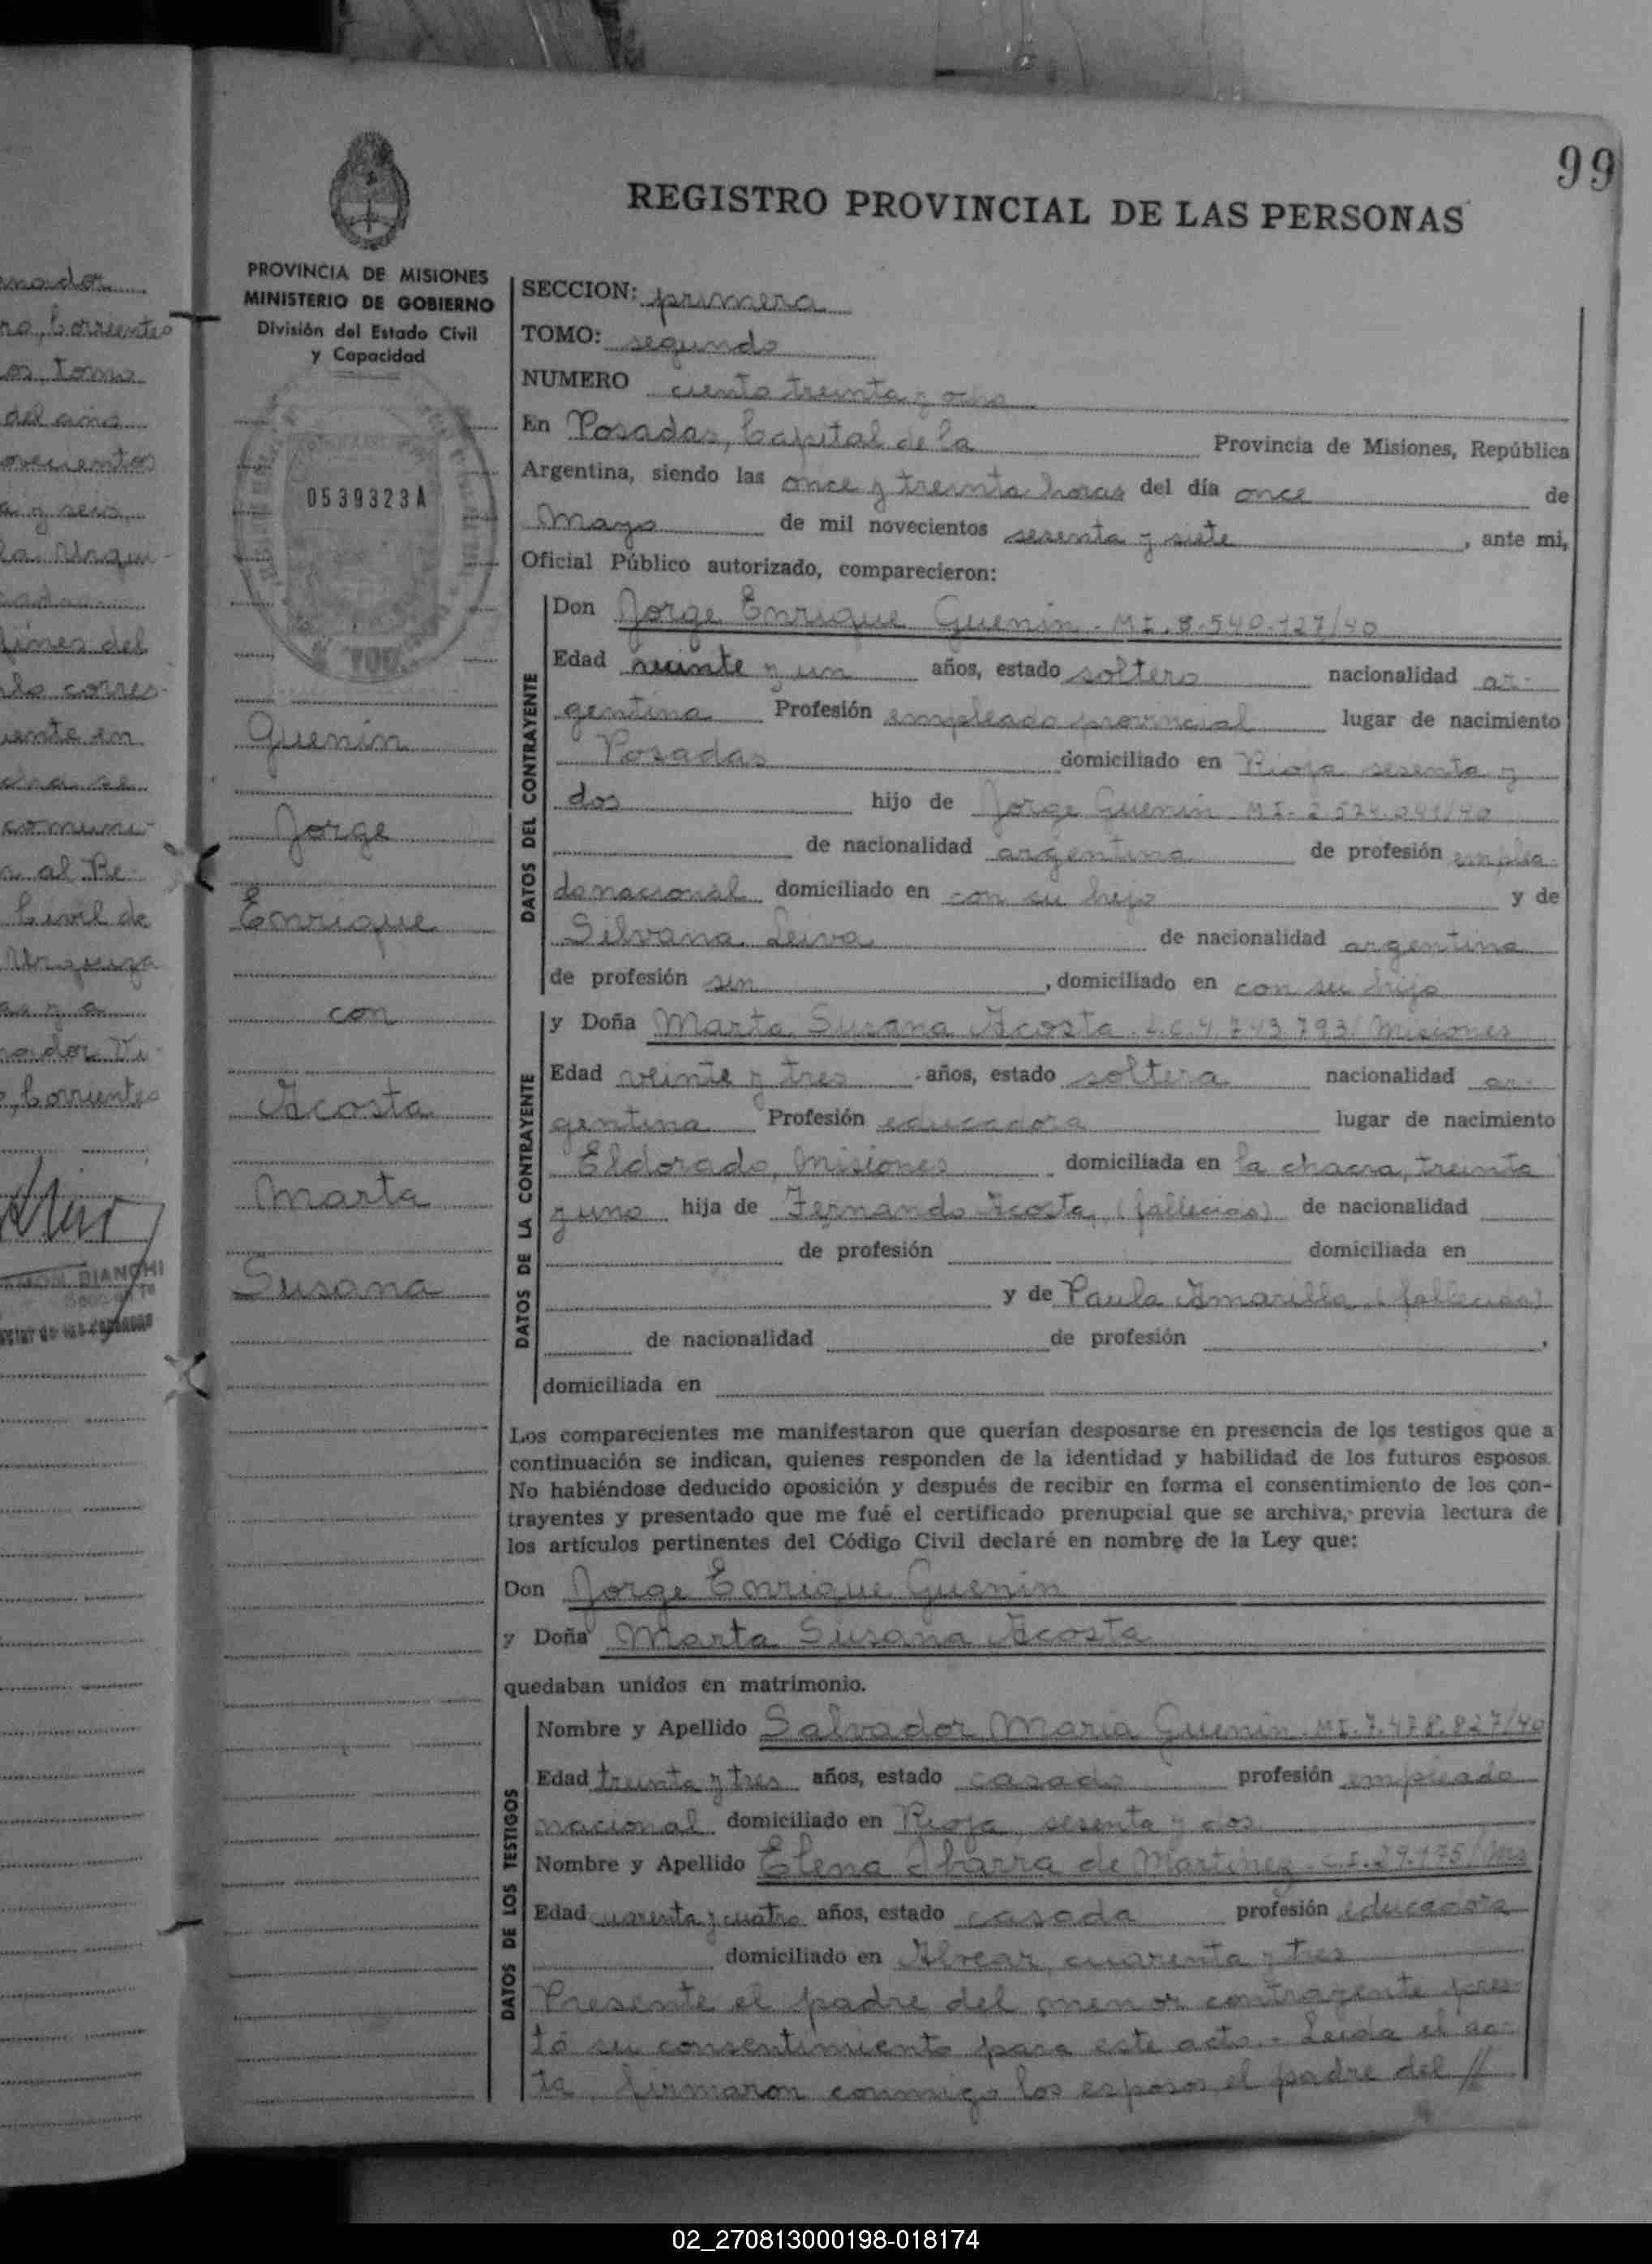 99
REGISTRO PROVINCIAL DE LAS PERSONAS
PROVINCIA DE MISIONES
MINISTERIO DE GOBIERNO
División del Estado Civil
y Capacidad
0539323A
Guenin
Jorge
Enrique
con
Acosta
Marta
Susana
SECCION: primera
TOMO: segundo
NUMERO ciento treinta y ocho
En Posadas, Capital de la Provincia de Misiones, República
Argentina, siendo las once y treinta horas del día once de
Mayo de mil novecientos sesenta y siete, ante mi,
Oficial Público autorizado, comparecieron:
DATOS DEL CONTRAYENTE
Don Jorge Enrique Guenin - M I. 8.540.127/40
Edad veinte y un años, estado soltero nacionalidad ar-
gentina Profesión empleado provincial lugar de nacimiento
Posadas domiciliado en Rioja sesenta y
dos hijo de Jorge Guenin M I- 2.574.041/40
de nacionalidad argentina de profesión emplea-
do nacional domiciliado en con su hijo y de
Silvana Leiva de nacionalidad argentina
de profesión sin, domiciliado en con su hijo
DATOS DE LA CONTRAYENTE
y Doña Marta Susana Acosta. L.C. 4.743.793/Misiones
Edad veinte y tres años, estado soltera nacionalidad ar-
gentina Profesión educadora lugar de nacimiento
Eldorado, Misiones domiciliada en la chacra, treinta
y uno hija de Fernando Acosta, (fallecido) de nacionalidad
de profesión domiciliada en
y de Paula Amarilla, (fallecida)
de nacionalidad de profesión ,
domiciliada en
Los comparecientes me manifestaron que querían desposarse en presencia de los testigos que a
continuación se indican, quienes responden de la identidad y habilidad de los futuros esposos.
No habiéndose deducido oposición y después de recibir en forma el consentimiento de los con-
trayentes y presentado que me fué el certificado prenupcial que se archiva, previa lectura de
los artículos pertinentes del Código Civil declaré en nombre de la Ley que:
Don Jorge Enrique Guenin
y Doña Marta Susana Acosta
quedaban unidos en matrimonio.
DATOS DE LOS TESTIGOS
Nombre y Apellido Salvador Maria Guenin. M I. 7.478.827/40
Edad treinta y tres años, estado casado profesión empleado
nacional domiciliado en Rioja, sesenta y dos
Nombre y Apellido Elena Ibarra de Martinez - C. I. 29.175/Mnes
Edad cuarenta y cuatro años, estado casada profesión educadora
domiciliado en Alvear, cuarenta y tres
Presente el padre del menor contrayente pres-
tó su consentimiento para este acto. - Leida el ac-
ta, firmaron conmigo los esposos, el padre del //
02_270813000198-018174